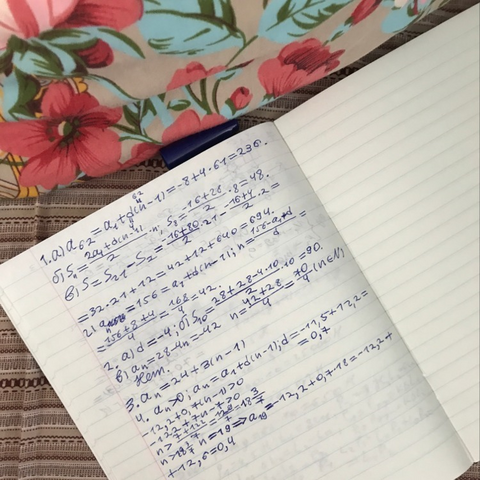 1. а) a₆₂ = a₁ + d(n-1) = -8 + 4·61 = 236.
б) Sₙ = (2a₁ + d(n-1))/2 · n; S₈ = (-16+28)/2 · 8 = 48.
в) S = S₂₁ - S₂ = (-16+80)/2 · 21 - (-16+4)/2 · 2 =
= 32·21 + 12 = 42 + 12 + 640 = 694.
г) = 156 = a₁ + d(n-1); n = (156 - a₁ + d)/d =
= (156+8+4)/4 = 168/4 = 42.
2. а) d = -4; б) S₁₀ = (28+28-4·10)/2 · 10 = 90.
в) aₙ = 28 - 4n = -42 n = (42+28)/4 = 70/4 (n∈N)
Нет.
3. aₙ = 24 + 3(n-1)
4. aₙ > 0; aₙ = a₁ + d(n-1); d = -11,5 + 12,2 =
-12,2 + 0,7(n-1) > 0 = 0,7
-12,2 + 7n - 7 > 0
n > 18 3/7
n = 19 ⇒ a₁₉ = -12,2 + 0,7·18 = -12,2 +
+ 12,6 = 0,4